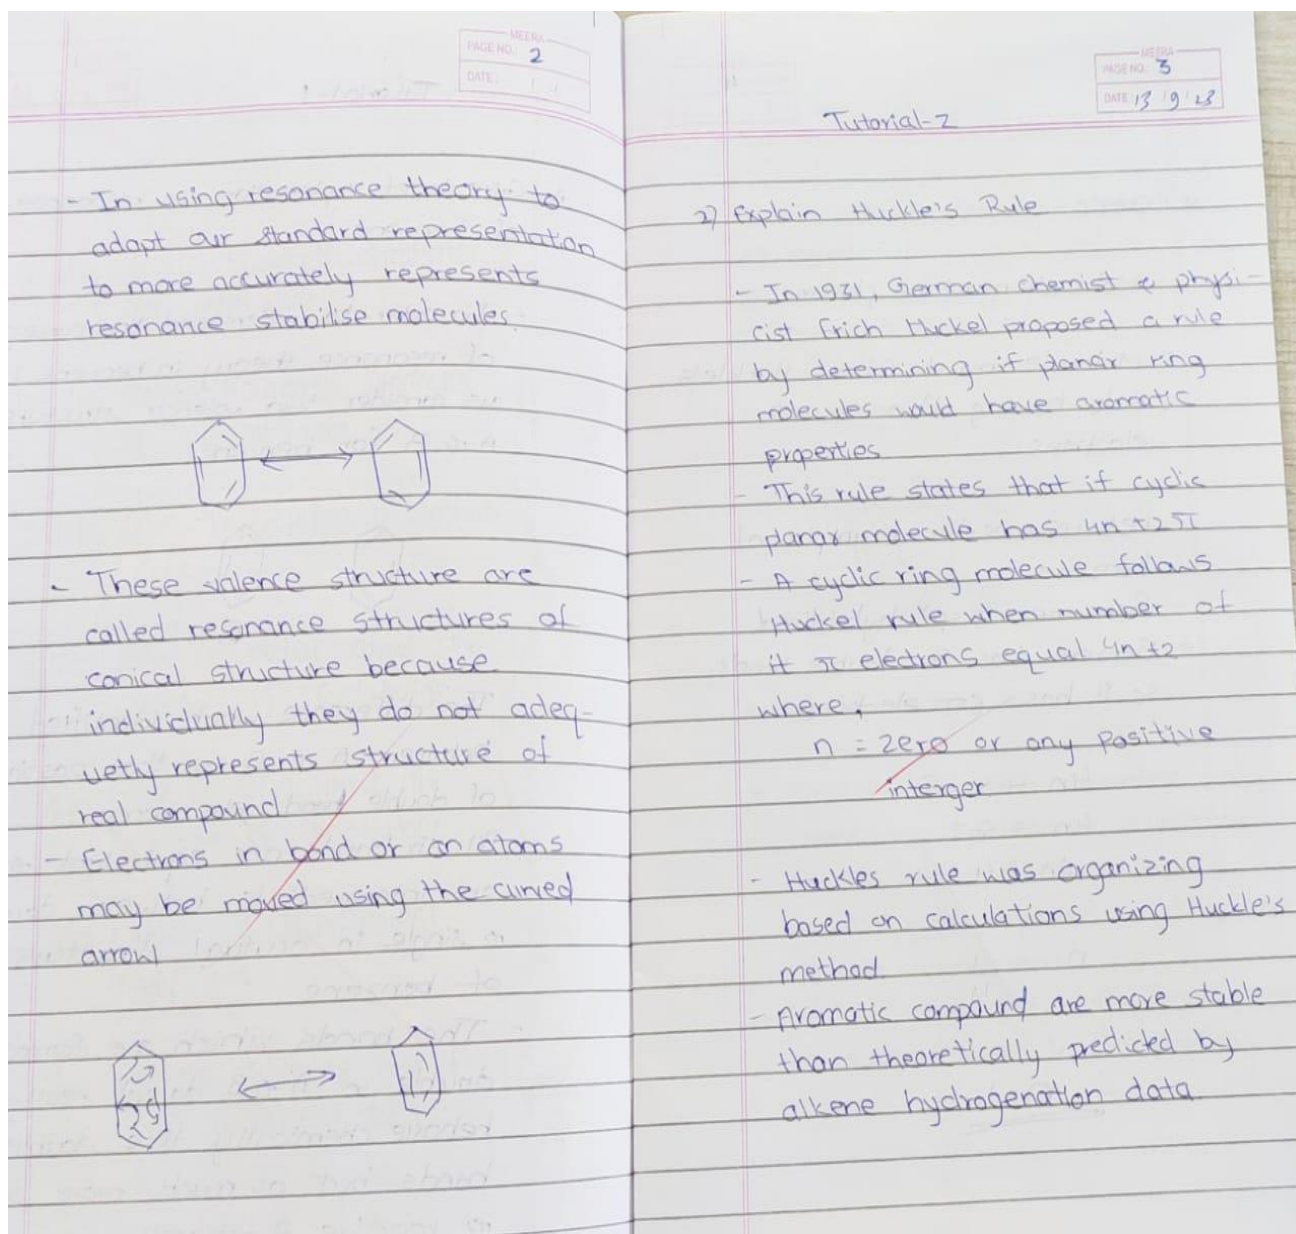 MEERA
PAGE NO. 2
DATE
- In using resonance theory to
adapt our standard representation
to more accurately represents
resonance stabilise molecules.
- These valence structure are
called resonance structures of
conical structure because
individually they do not adeq-
uetly represents structure of
real compound
- Electrons in bond or on atoms
may be moved using the curved
arrow
MEERA
PAGE NO. 3
DATE 13 9 23
Tutorial-2
2) Explain Huckle's Rule
- In 1931, German chemist & physi-
cist Erich Huckel proposed a rule
by determining if planar ring
molecules would have aromatic
properties
- This rule states that if cyclic
planar molecule has 4n+2π
- A cyclic ring molecule follows
Huckel rule when number of
it π electrons equal 4n+2
where,
n = zero or any positive
interger
- Huckles rule was organizing
based on calculations using Huckle's
method
- Aromatic compound are more stable
than theoretically predicted by
alkene hydrogenation data